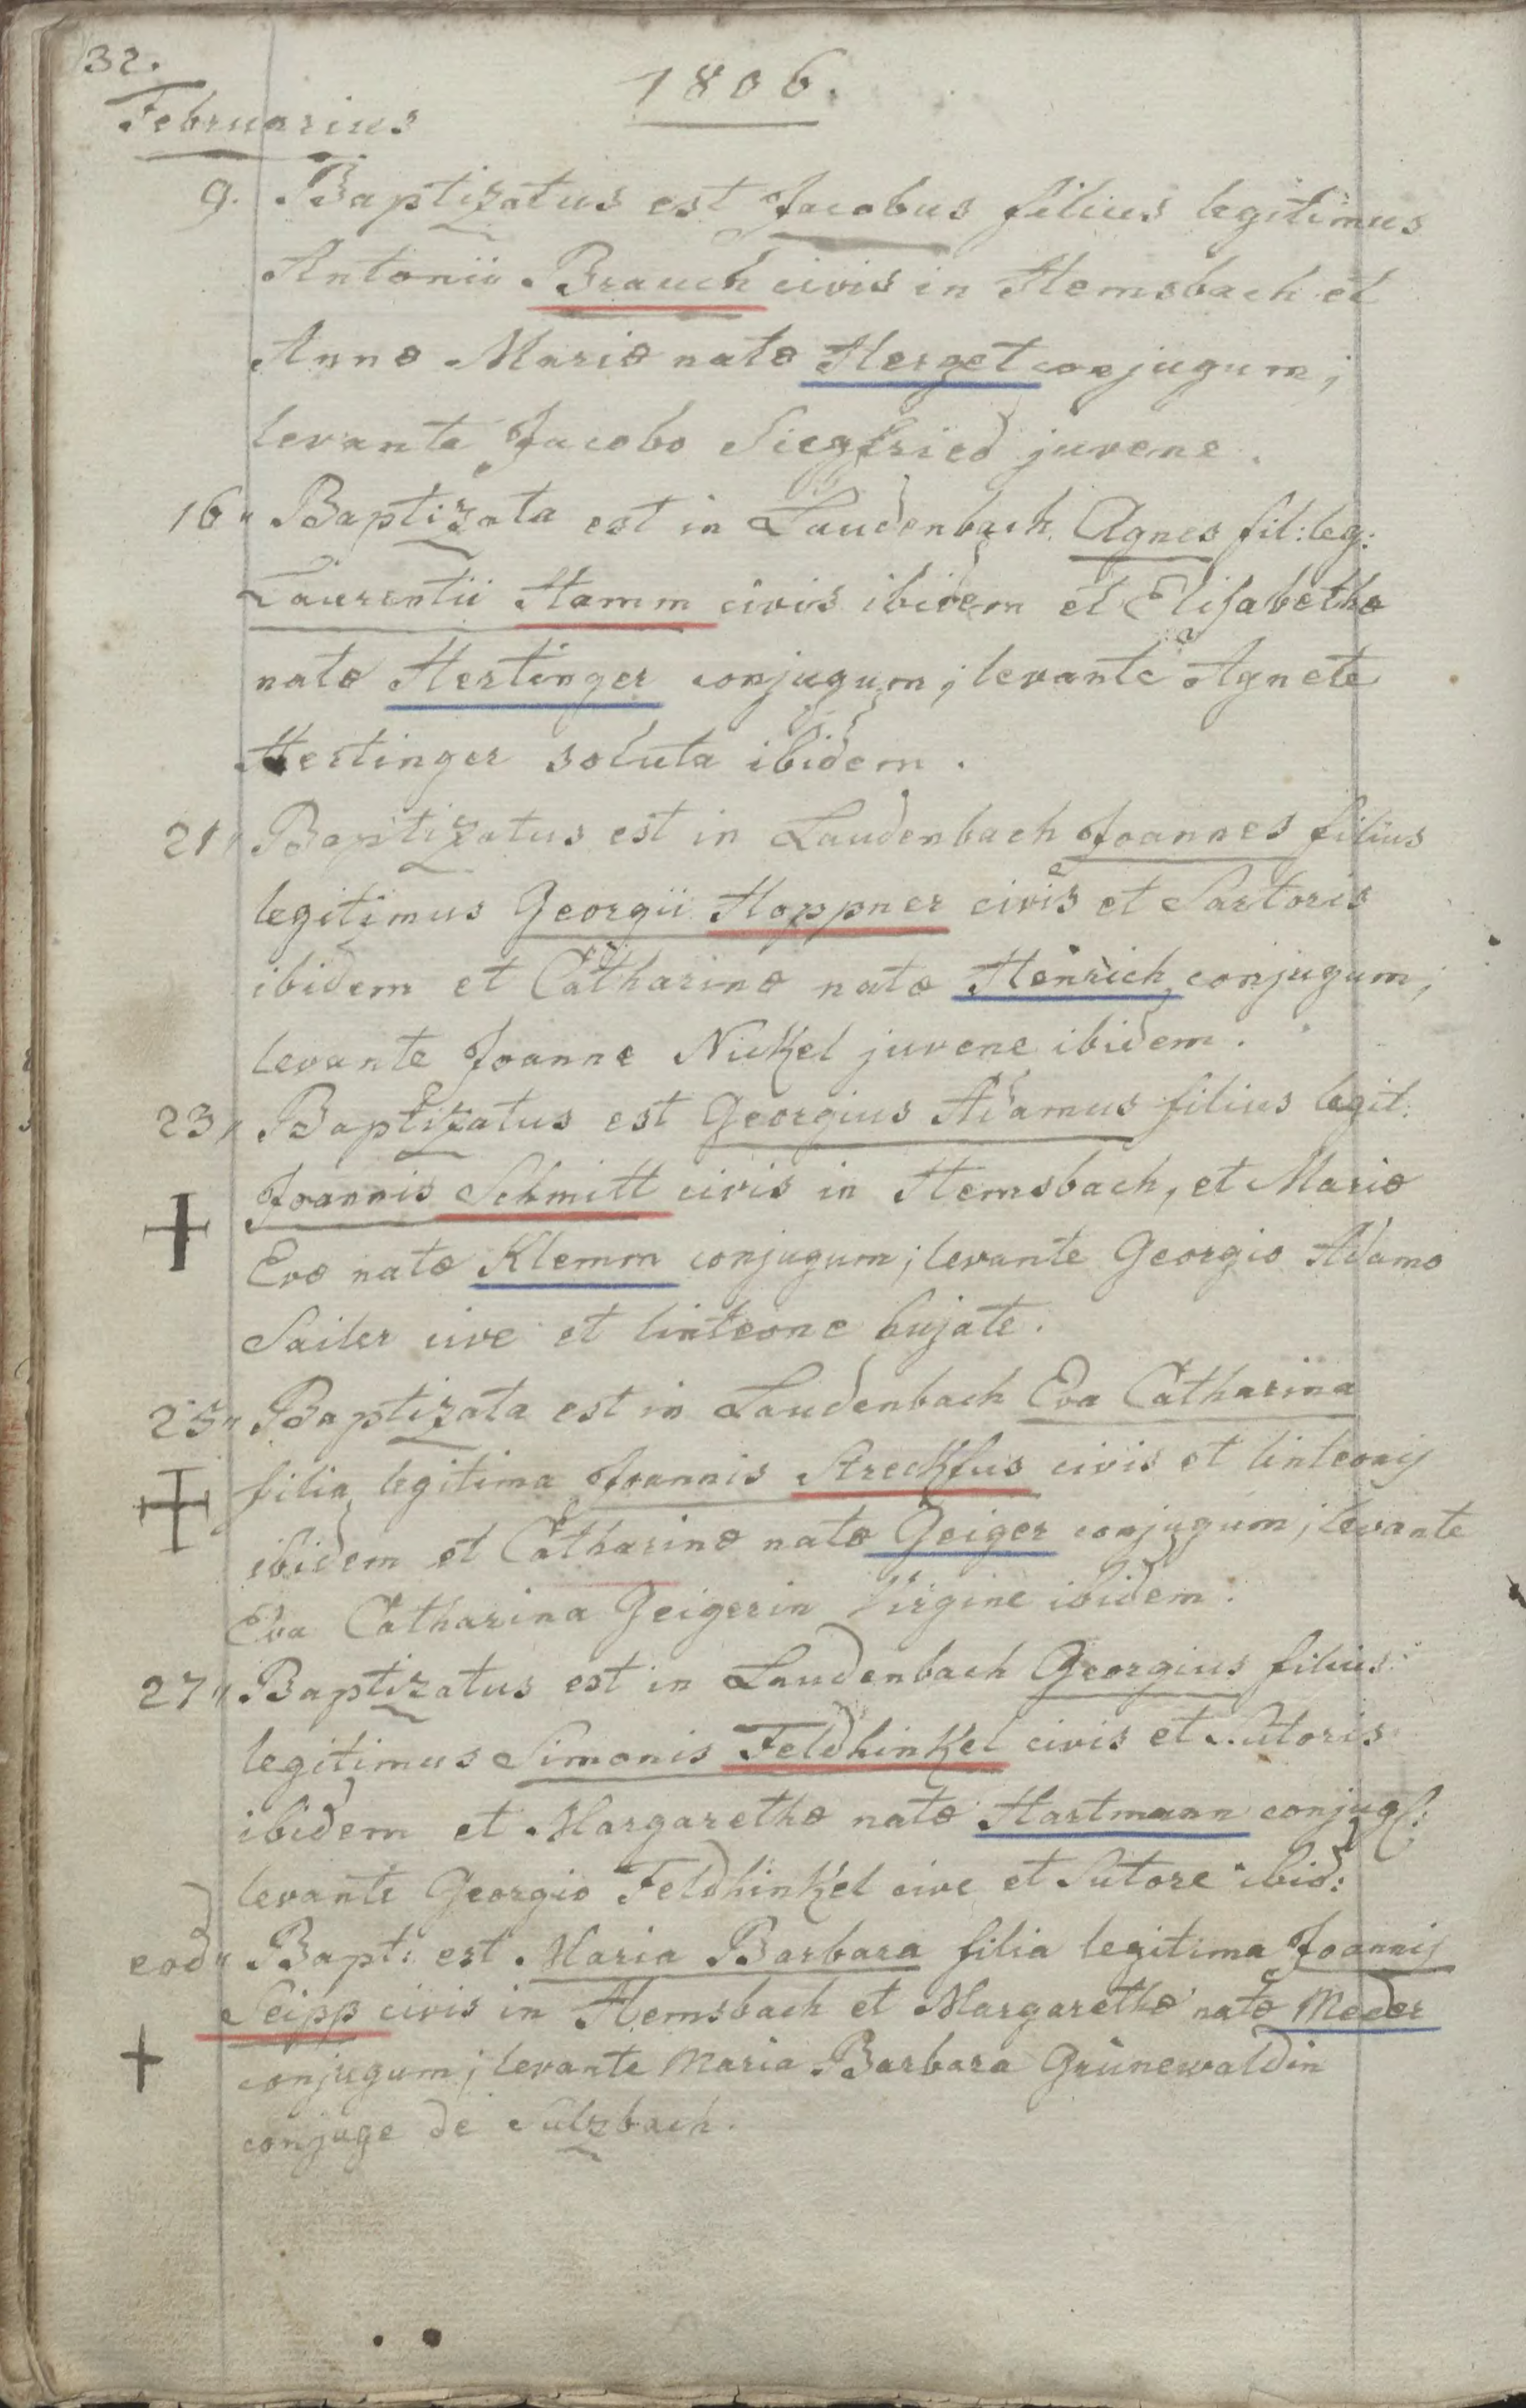 32.
1806.
Februarius
9. Baptizatus est Jacobus filius legitimus
Antonii Brauch civis in Hemsbach et
Annæ Mariæ natæ Herzet conjugum;
levante Jacobo Siegfried juvene.
16" Baptizata est in Laudenbach Agnes fil: leg:
Laurentii Hamm civis ibidem et Elisabethæ
natæ Hertinger conjugum; levante Agnete
Hertinger soluta ibidem.
21" Baptizatus est in Laudenbach Joannes filius
legitimus Georgii Hoppner civis et Sartoris
ibidem et Catharinæ natæ Henrich conjugum;
levante Joanne Nickel juvene ibidem.
23" Baptizatus est Georgius Adamus filius legit:
Joannis Schmitt civis in Hemsbach, et Mariæ
Evæ natæ Klemm conjugum; levante Georgio Adamo
Sailer cive et linteone hujate.
25" Baptizata est in Laudenbach Eva Catharina
filia legitima Joannis Streckfus civis et linteonis
ibidem et Catharinæ natæ Geiger conjugum; levante
Eva Catharina Geigerin Virgine ibidem.
27" Baptizatus est in Laudenbach Georgius filius
legitimus Simonis Feldhinkel civis et Sutoris
ibidem et Margarethæ natæ Hartmann conjug:;
levante Georgio Feldhinkel cive et Sutore ibid:
eod" Bapt: est Maria Barbara filia legitima Joannis
Seipp civis in Hemsbach et Margarethæ natæ Meder
conjugum; levante Maria Barbara Grünewaldin
conjuge de Sulzbach.